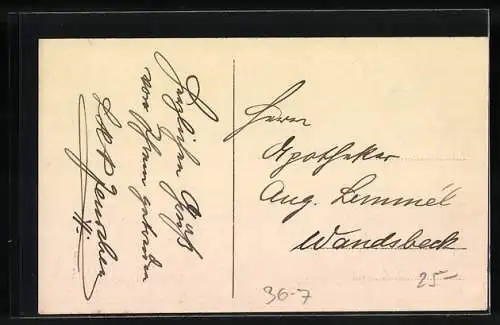 Herzlichen Gruß
von Ihrem getreuen
Herrn
Apotheker
Aug. Lemmél
Wandsbeck
36-7
25-